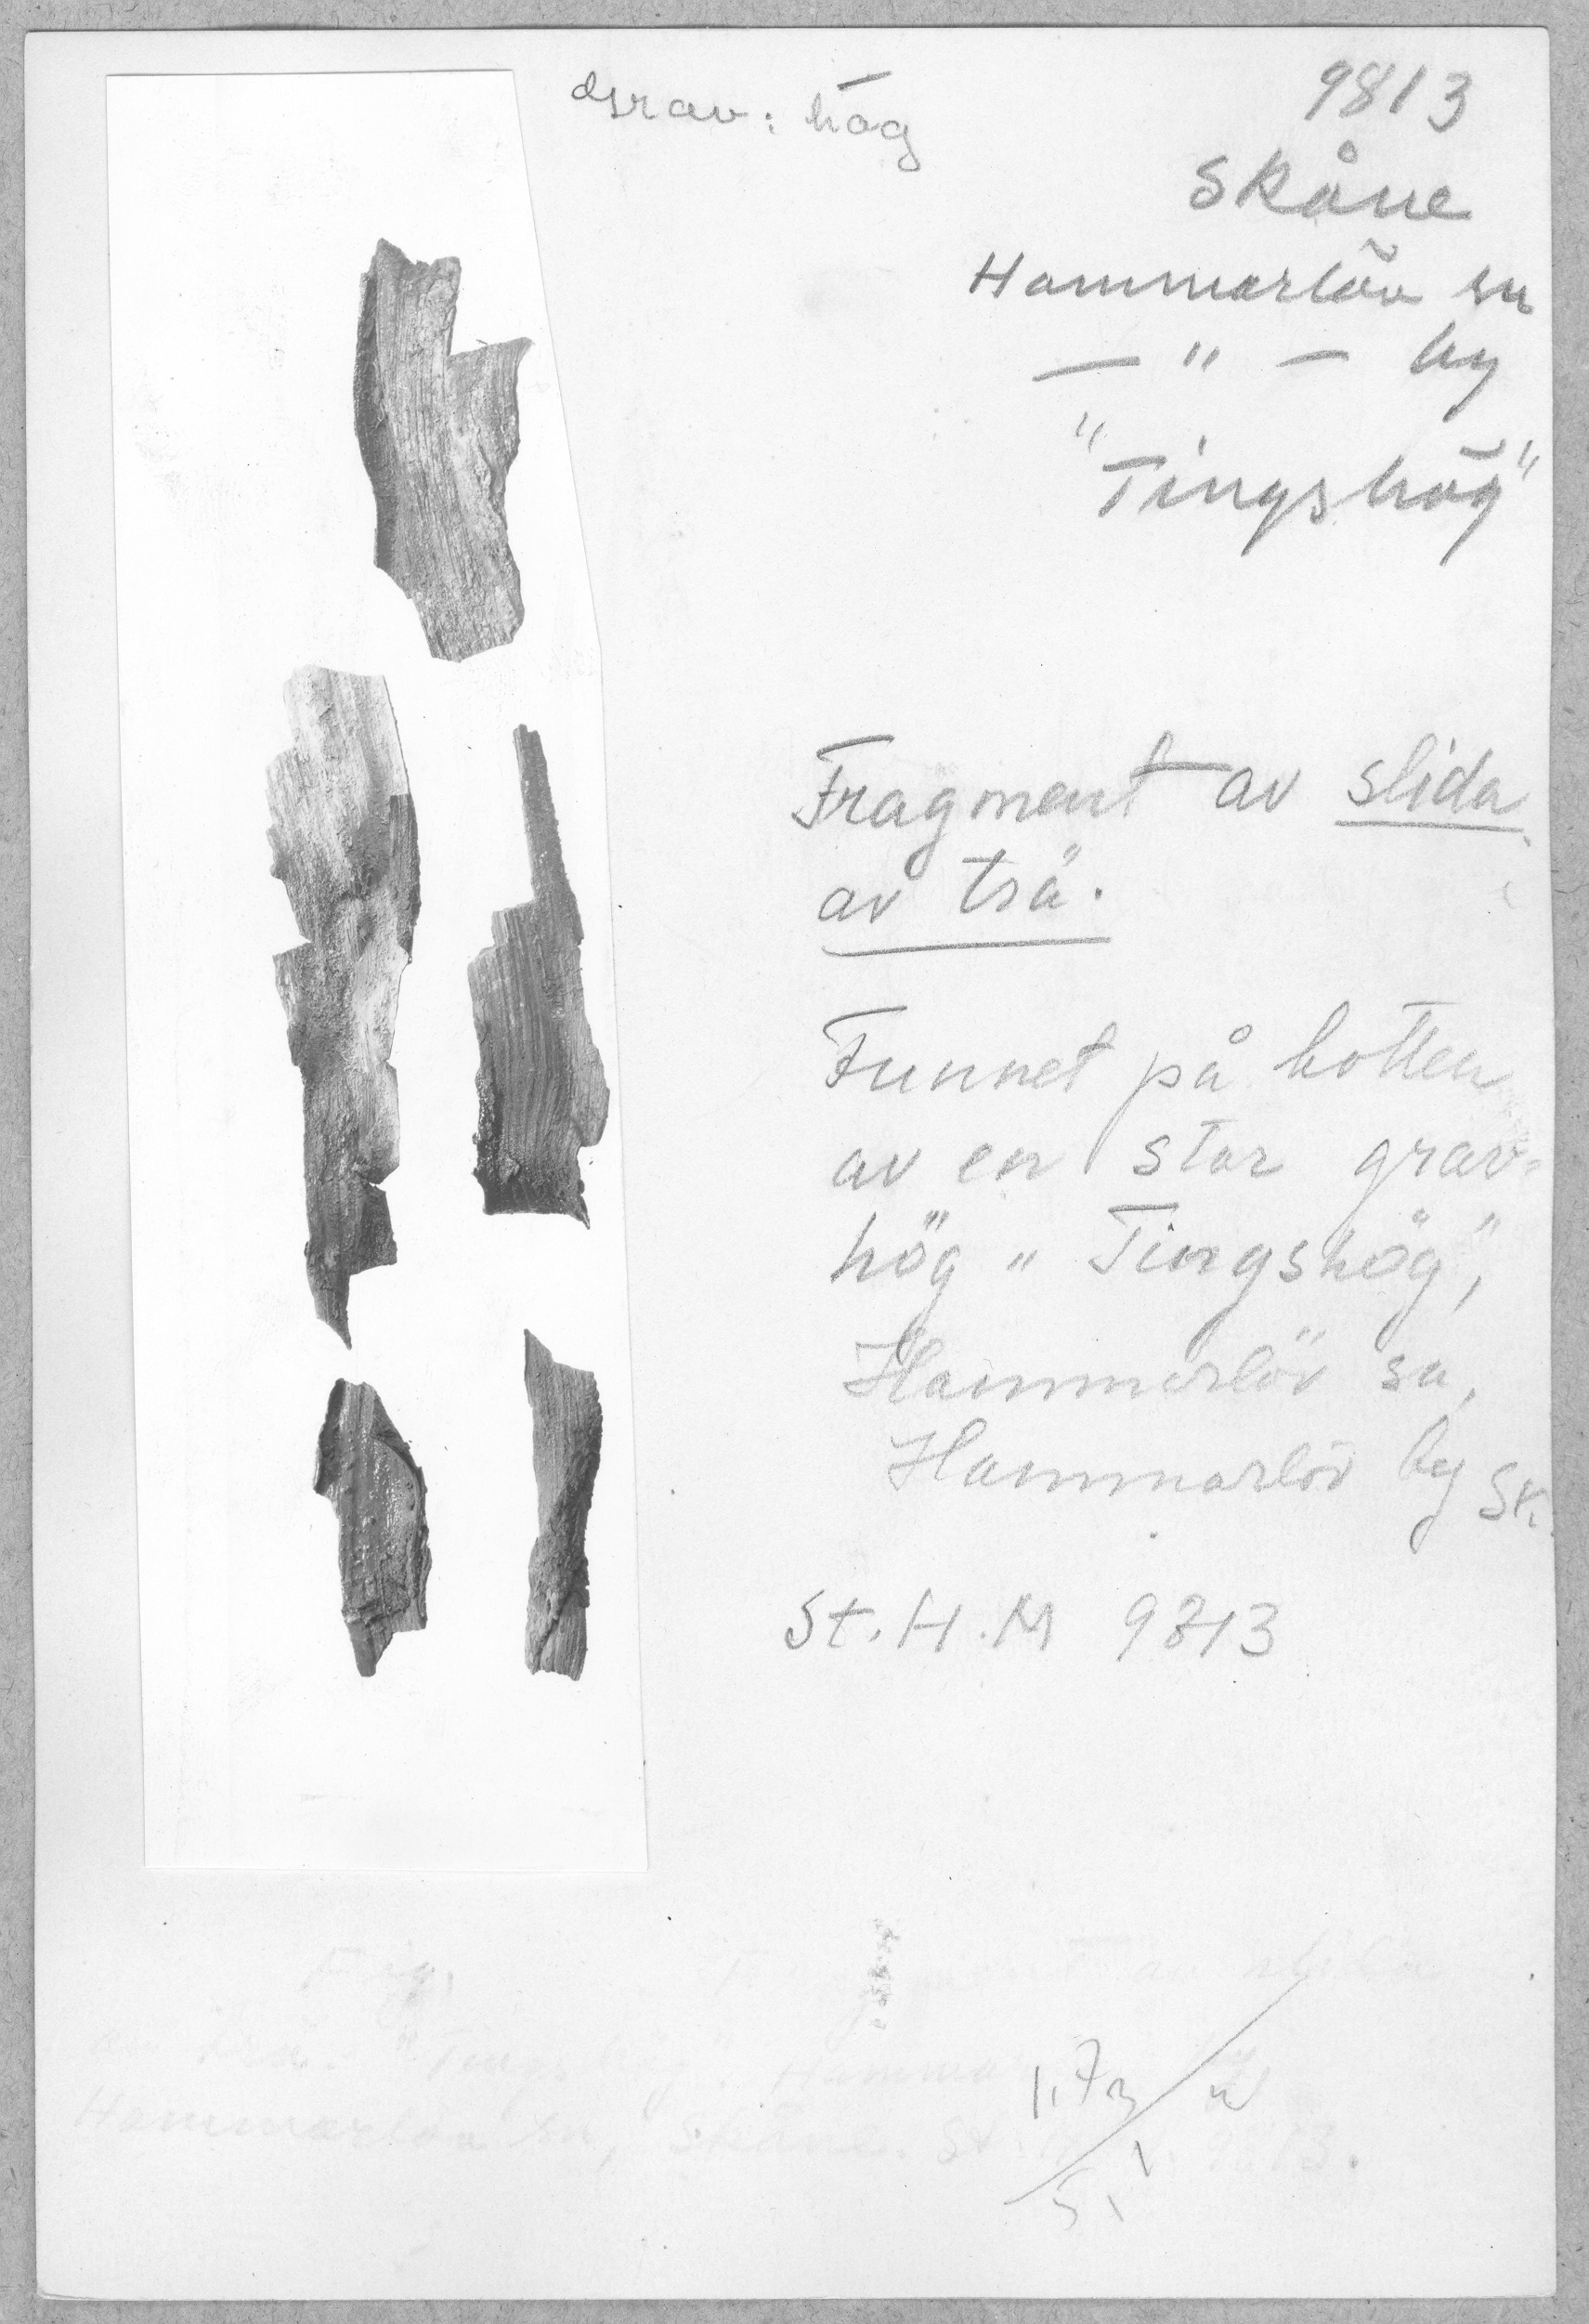 Grav: hög
9813
Skåne
Hammarlöv sn
— " — by
"Tingshög"
Fragment av slida
av trä.
Funnet på botten
av en stor grav-
hög "Tingshög",
Hammarlöv sn,
Hammarlöv by Sk.
St. H. M 9813
Fig.
av trä. "Tingshög".
Hammarlöv sn, Skåne. St. H. M. 9813.